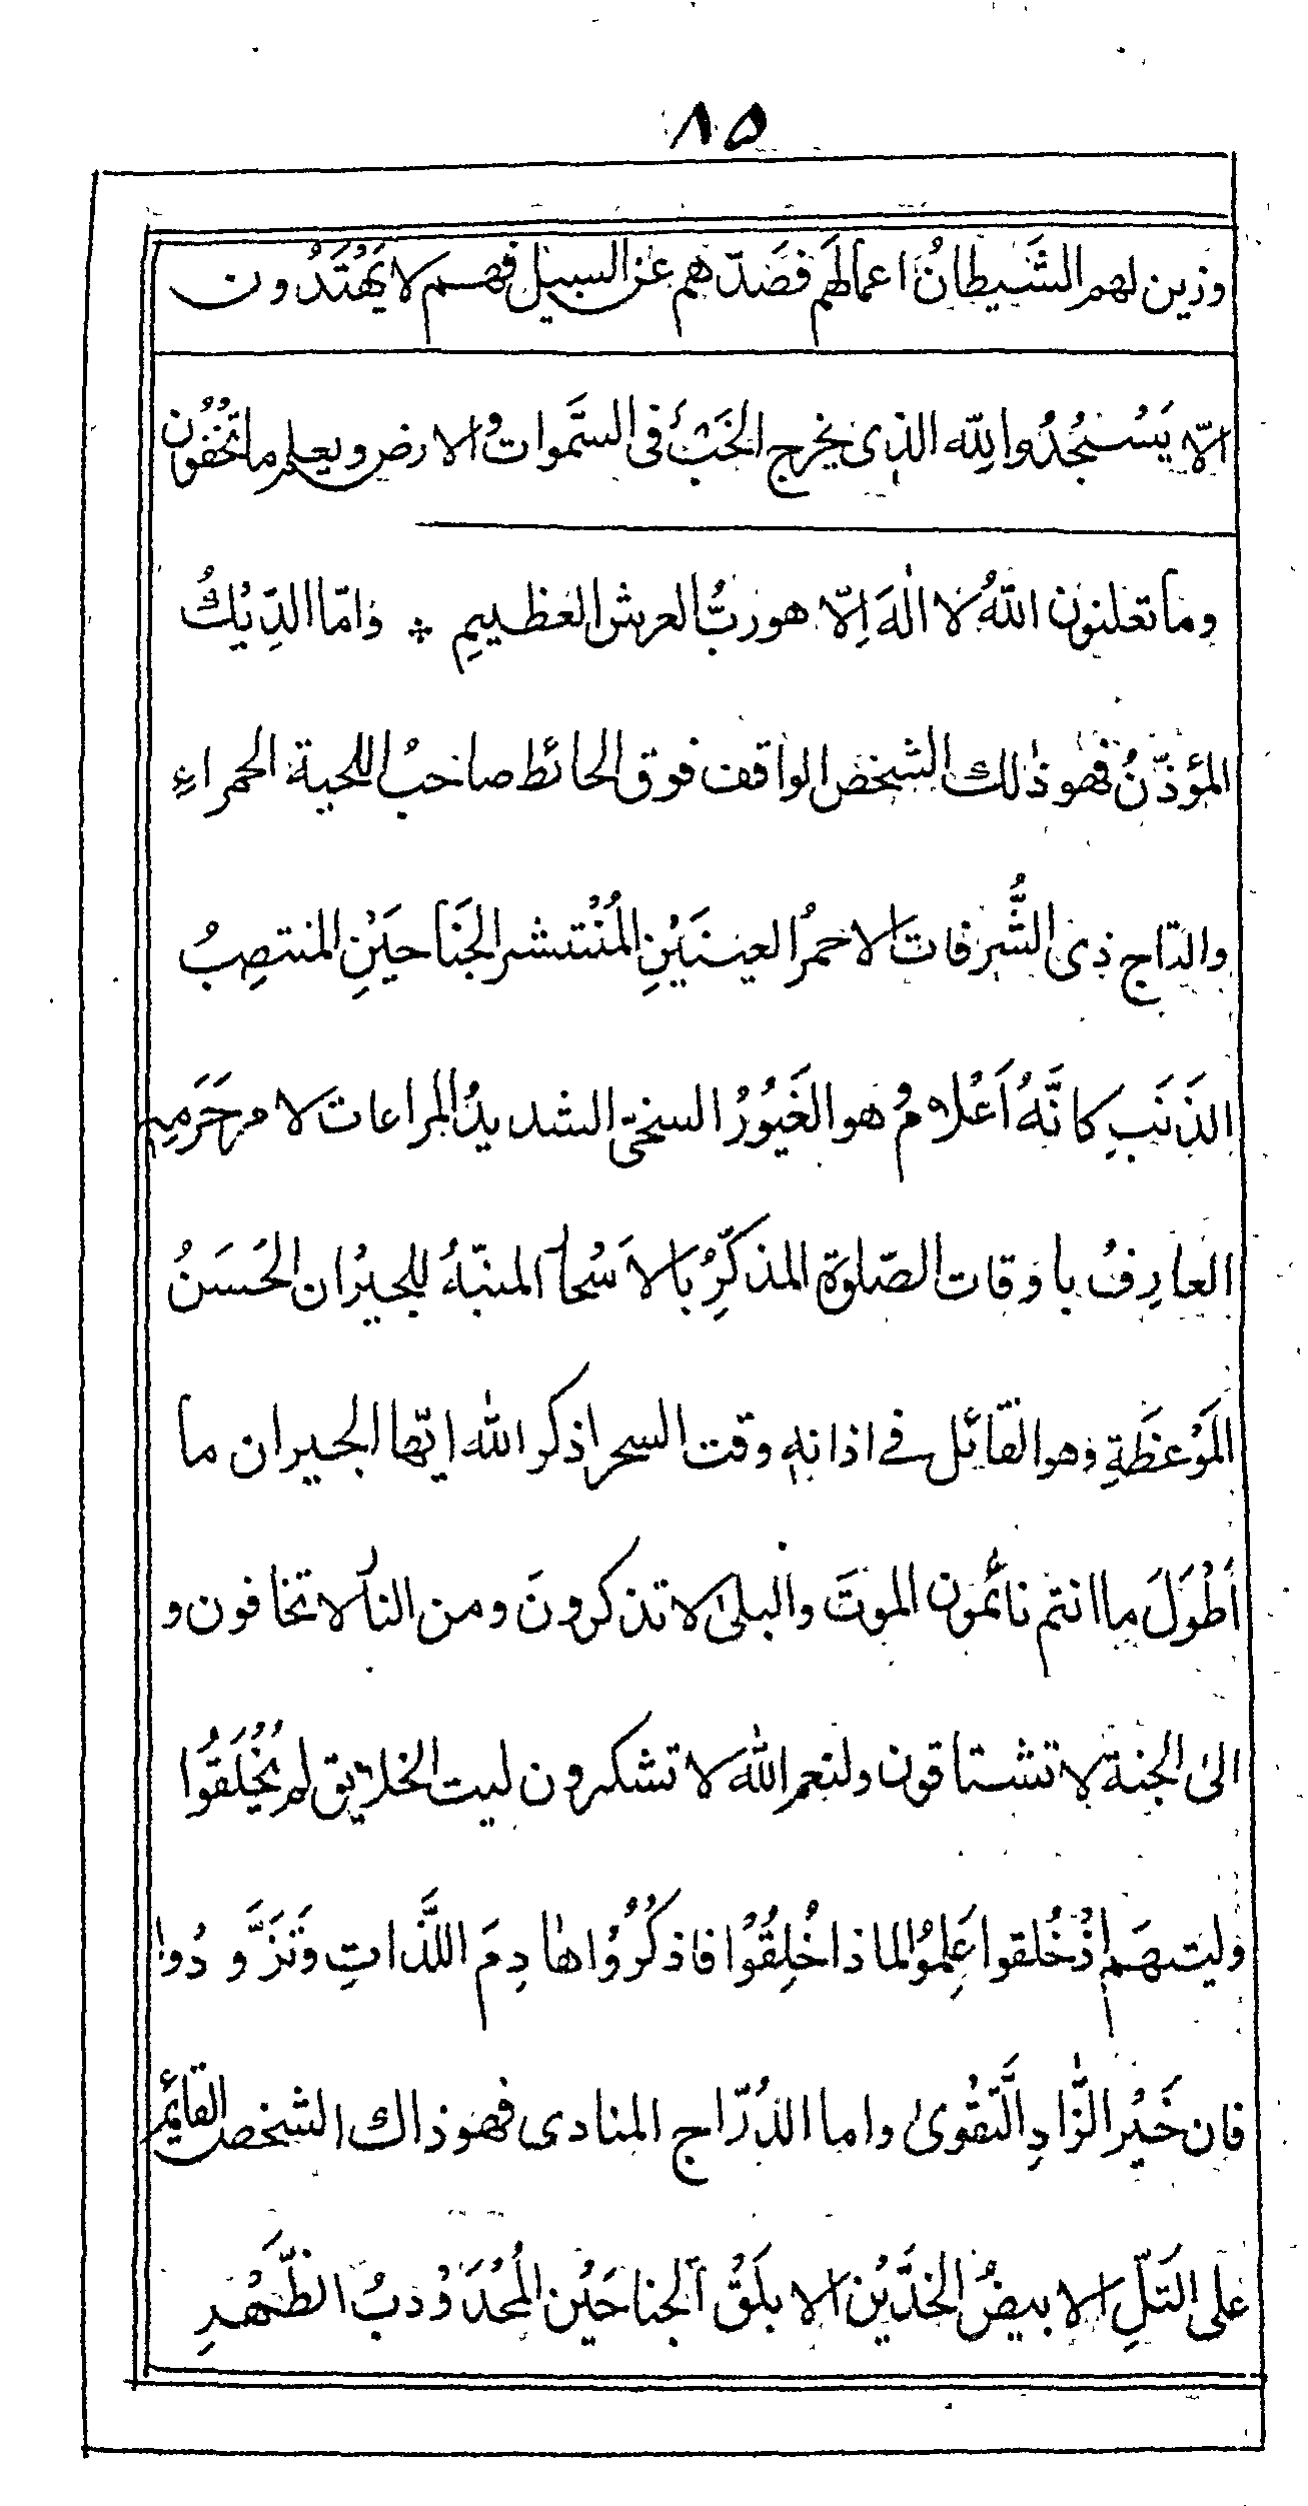 ٨٥
وزين لهم الشَّيطانُ اعمالَهم فصَدّهم عن السبيل فهم لا يَهْتَدُون
الّا يَسْجُدُوا لِلّه الذى يخرج الخَبْئَ فى السَّموات والارض ويعلم ما تُخْفُون
وما تعلنون اللّهُ لا الٰهَ اِلّا هو ربُّ العرش العظيمِ ؞ وامّا الدِّيْكُ
المؤذّنُ فهو ذٰلك الشخص الواقف فوق الحائط صاحبُ اللحية الحمراءِ
والتاج ذى الشُّرفات الاحمرُ العينَيْنِ المُنْتشر الجَناحيَنِ المنتصِبُ
الذَنَبِ كانَّهُ اَعْلامُ هو الغَيُورُ السخىّ الشديدُ المراعات لامر حَرَمِهِ
العارِفُ باوقات الصّلوة المذكِّرُ بالاَسْحار المنبّهُ للجيران الحُسَنُ
المَوْعظَةِ وهو القائل فے اذانهٖ وقت السحر اذكر الله ايّها الجيران ما
اَطْوَلَ ما انتم نائمون الموتَ والبلىٰ لا تذكرونَ ومن النار لا تخافون و
الىٰ الجنة لا تشتاقون ولنعم اللّه لا تشكرون ليت الخلايق لم يُخْلَقُوا
وليتهَم اذْخُلقوا عَلِمُوْا لماذا خُلِقُوْا فاذكُرُوْا هادِمَ اللَّذاتِ وتَزَوَّدُوا
فان خَيْرَ الزَّادِ التَّقْوىٰ واما الدُرّاج المنادى فهو ذاك الشخص القائم
على التَلِّ الابيضُ الخَدَّيْن الابلَقُ الجناحَيْن المُحْدَوْدبُ الظَّهْرِ